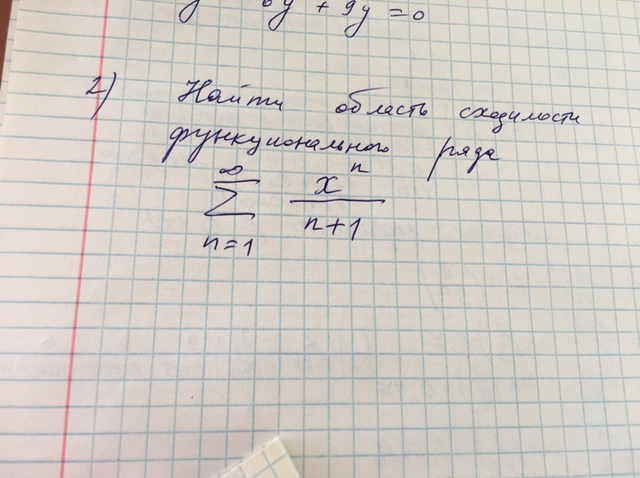 6y + 9y = 0
2) Найти область сходимости
функционального ряда
∞
∑ xⁿ / n+1
n=1